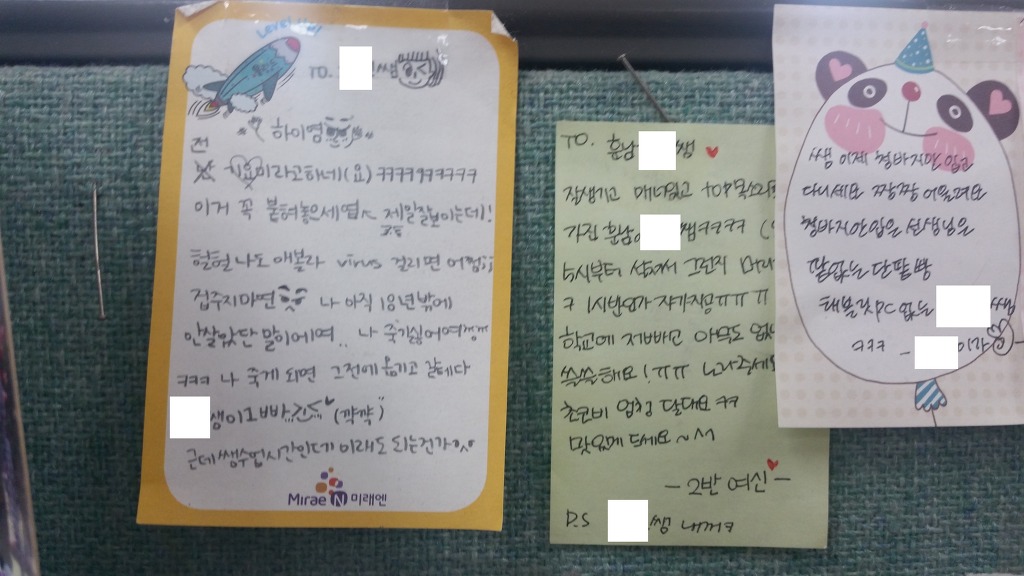 LEVEL UP!
TO. 쌤
하이염
전
지윤미라고하네(요) ㅋㅋㅋㅋㅋㅋㅋㅋㅋㅋ
이거 꼭 붙혀놓은세염ㅅ 제일잘보이는데!!
헐헐 나도 애볼라 virus 걸리면 어쩜;;
겁주지마면 나 아직 18년밖에
안살았단 말이에여.. 나 죽기싫어여
ㅋㅋㅋ 나 죽게 되면 그전에 옴기고 갈헤다
생이고 빠 (꺅꺅)
근데 쌤수업시간인데 이래도 되는건가
Mirae N 미래엔
TO. 훈남 쌤
잘생기고 매너있고 top목소리
가진 훈남 쌤ㅋㅋㅋㅋ
5시부터 그런지 머리
ㅋ 1시반인가 자가지공ㅠㅠ ㅠ
학교에 제빠르고 아무도 없
쓸쓸해요!ㅠㅠ 놔주세
초코비 엄청 달대요 ㅋㅋ
맛있게 드세요~^^
- 2반 여신 -
P.S 쌤 내꺼ㅋ
쌤 이제 청바지만 입고
다니세요 짱짱 어울려요
청바지안입은 선생님은
팥없는 단팥빵
해볼락pc없는 쌤
ㅋㅋㅋ - 이가